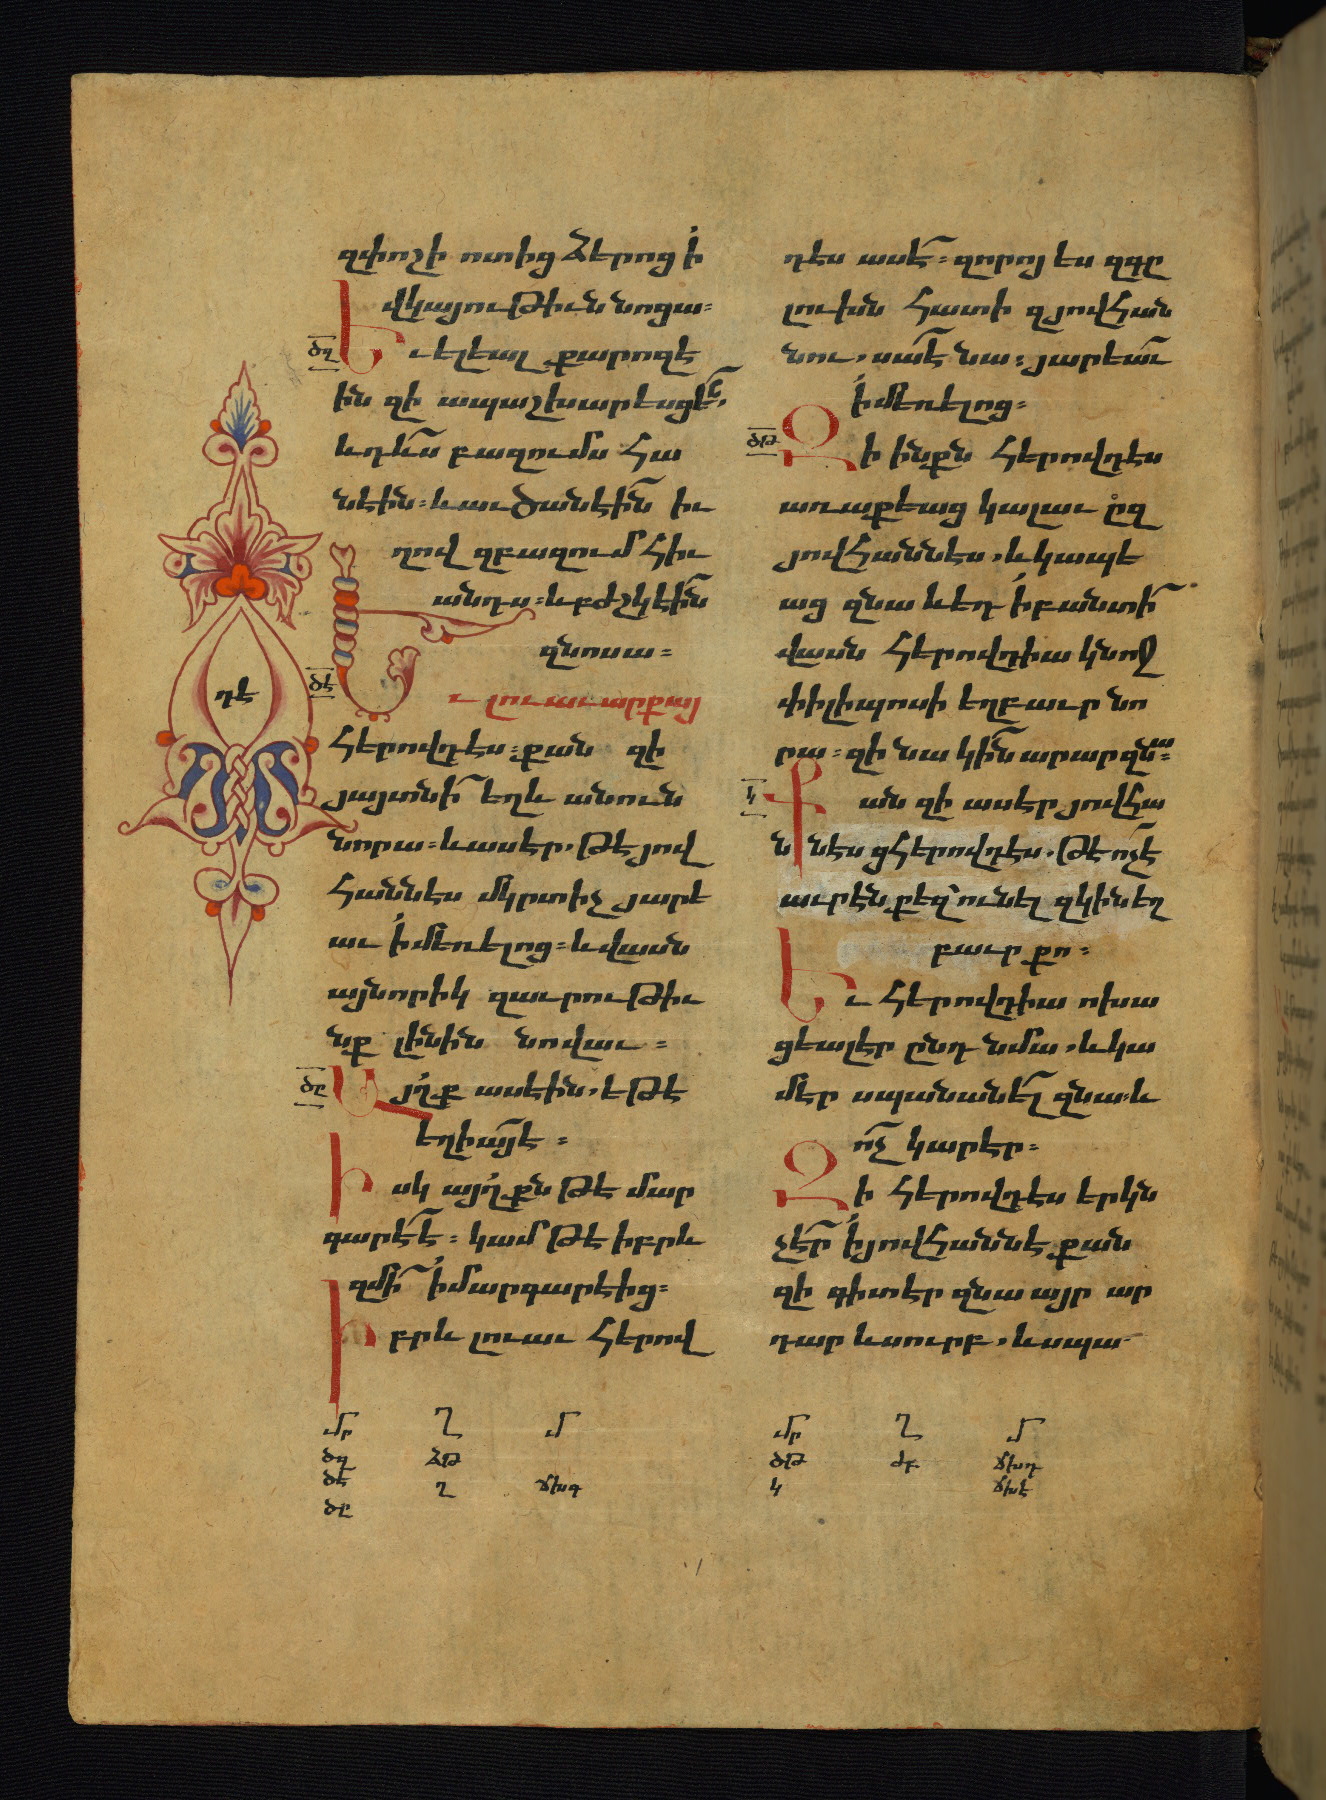 զփոշի ոտից ձերոց ՛ի
վկայութիւն նոցա։
ծզ
Եւ ելեալ քարոզէ
ին զի ապաշխարեսցեն,
և դևս բազումս հա
նէին։ և աւծանէին իւ
ղով զբազում հիւ
անդս։ և բժշկէին
զնոսա։
դէ
ծէ
Եւ լուաւ արքայ
Հերովդէս։ քան զի
յայտնի եղև անուն
նորա։ և ասէր, թէ յով
հաննէս մկրտիչ յարե
աւ ՛ի մեռելոց։ և վասն
այնորիկ զաւրութիւ
նք լինին նովաւ։
ծը
Այլք ասէին, եթէ
եղիայ է։
Իսկ այլ քն թէ մար
գարէ է։ կամ թէ իբրև
զմի ՛ի մարգարէից։
Իբրև լուաւ հերով
դէս ասէ։ զորոյ ես զգը
լուխն հատի զյովհան
նու, սա է նա։ յարեաւ
՛ի մեռելոց։
ծթ
Զի ինքն հերովդէս
առաքեաց կալաւ ըզ
յովհաննէս, և կապե
աց զնա և եդ ՛ի բանտի
վասն հերովդիա կնոջ
փիլիպոսի եղբաւր նո
րա։ զի նա կին արար զնա։
կ
Քան զի ասէր յովհա
ննէս ցհերովդէս, թէ ոչ է
աւրէն քեզ ունել զկին եղ
բաւր քո։
Եւ հերովդիա ոխա
ցեալ էր ընդ նմա, և կա
մէր սպանանել զնա։ և
ոչ կարէր։
Զի հերովդէս երկն
չէր ՛ի յովհաննէ քան
զի գիտէր զնա այր ար
դար և սուրբ, և սպա
մր Ղ մ
ծզ ձթ
ծէ ղ ճխգ
ծը
մր Ղ մ
ծթ ժբ ճխդ
կ ճխէ